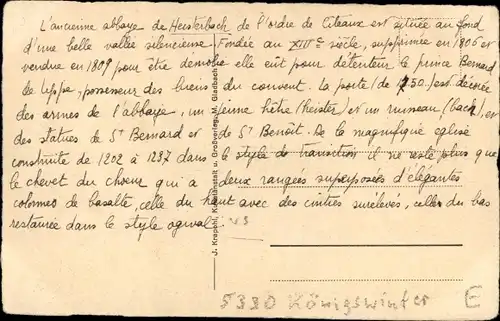 L'ancienne abbaye de Heisterbach de l'ordre de Citeaux est située au fond
d'une belle vallée silencieuse. Fondée au XIIIe siècle, supprimée en 1806 et
vendue en 1809 pour être démolie elle eut pour détenteur le prince Bernard
de Lippe, possesseur des biens du couvent. La porte (de 1750) est décorée
des armes de l'abbaye, un jeune hêtre (Heister) et un ruisseau (bach), et
des statues de St Bernard et de St Benoît. De la magnifique église
construite de 1202 à 1237 dans le style de transition il ne reste plus que
le chevet du choeur qui a deux rangées superposées d'élégantes
colonnes de basalte, celle du haut avec des cintres surélevés, celles du bas
restaurée dans le style ogival.
J. Krapohl, Kunstanstalt u. Großverlag, M. Gladbach
5330 Königswinter
E